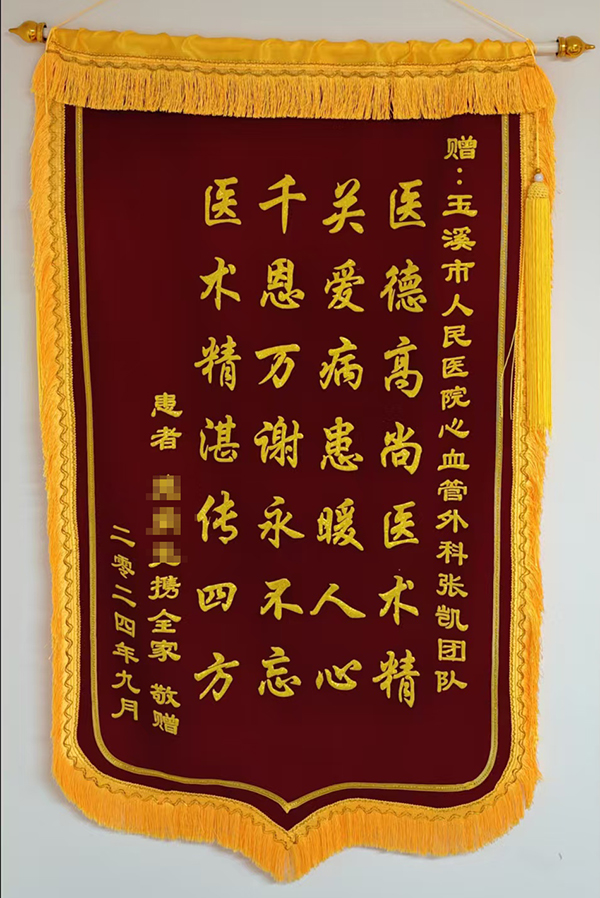 赠：玉溪市人民医院心血管外科张凯团队
医德高尚医术精
关爱病患暖人心
千恩万谢永不忘
医术精湛传四方
患者 携全家 敬赠
二零二四年九月